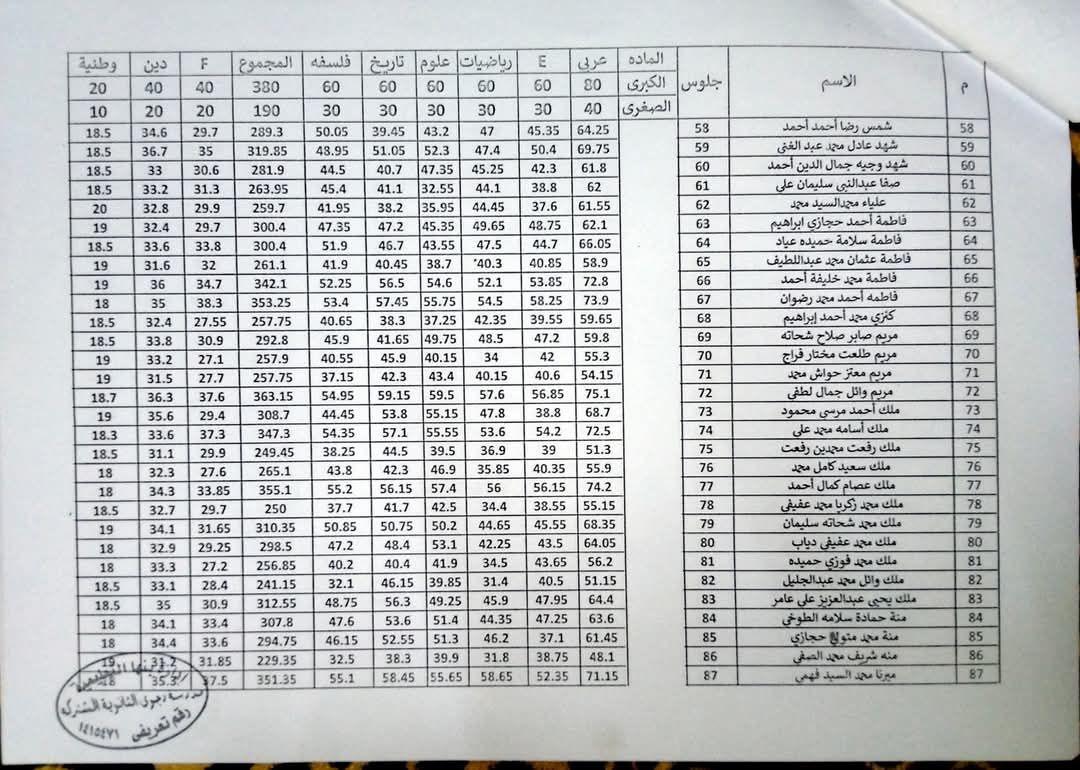 م الاسم جلوس الماده عربى E رياضيات علوم تاريخ فلسفه المجموع F دين وطنية
الكبرى 80 60 60 60 60 60 380 40 40 20
الصغرى 40 30 30 30 30 30 190 20 20 10
58 شمس رضا أحمد أحمد 58 64.25 45.35 47 43.2 39.45 50.05 289.3 29.7 34.6 18.5
59 شهد عادل محمد عبد الغنى 59 69.75 50.4 47.4 52.3 51.05 48.95 319.85 35 36.7 18.5
60 شهد وجيه جمال الدين أحمد 60 61.8 42.3 45.25 47.35 40.7 44.5 281.9 30.6 33 18.5
61 صفا عبدالنبى سليمان على 61 62 38.8 44.1 32.55 41.1 45.4 263.95 31.3 33.2 18.5
62 علياء محمدالسيد محمد 62 61.55 37.6 44.45 35.95 38.2 41.95 259.7 29.9 32.8 20
63 فاطمة أحمد حجازي ابراهيم 63 62.1 48.75 49.65 45.35 47.2 47.35 300.4 29.7 32.4 19
64 فاطمة سلامة حميده عياد 64 66.05 44.7 47.5 43.55 46.7 51.9 300.4 33.8 33.6 18.5
65 فاطمة عثمان محمد عبداللطيف 65 58.9 40.85 40.3 38.7 40.45 41.9 261.1 32 31.6 19
66 فاطمة محمد خليفة أحمد 66 72.8 53.85 52.1 54.6 56.5 52.25 342.1 34.7 36 19
67 فاطمه أحمد محمد رضوان 67 73.9 58.25 54.5 55.75 57.45 53.4 353.25 38.3 35 18
68 كنزي محمد أحمد إبراهيم 68 59.65 39.55 42.35 37.25 38.3 40.65 257.75 27.55 32.4 18.5
69 مريم صابر صلاح شحاته 69 59.8 47.2 48.5 49.75 41.65 45.9 292.8 30.9 33.8 18.5
70 مريم طلعت مختار فراج 70 55.3 42 34 40.15 45.9 40.55 257.9 27.1 33.2 19
71 مريم معتز حواش محمد 71 54.15 40.6 40.15 43.4 42.3 37.15 257.75 27.7 31.5 19
72 مريم وائل جمال لطفى 72 75.1 56.85 57.6 59.5 59.15 54.95 363.15 37.6 36.3 18.7
73 ملك أحمد مرسى محمود 73 68.7 38.8 47.8 55.15 53.8 44.45 308.7 29.4 35.6 19
74 ملك أسامه محمد على 74 72.5 54.2 53.6 55.55 57.1 54.35 347.3 37.3 33.6 18.3
75 ملك رفعت محمدبن رفعت 75 51.3 39 36.9 39.5 44.5 38.25 249.45 29.9 31.1 18.5
76 ملك سعيد كامل محمد 76 55.9 40.35 35.85 46.9 42.3 43.8 265.1 27.6 32.3 18
77 ملك عصام كمال أحمد 77 74.2 56.15 56 57.4 56.15 55.2 355.1 33.85 34.3 18
78 ملك محمد زكريا محمد عفيفى 78 55.15 38.55 34.4 42.5 41.7 37.7 250 29.7 32.7 18.5
79 ملك محمد شحاته سليمان 79 68.35 45.55 44.65 50.2 50.75 50.85 310.35 31.65 34.1 19
80 ملك محمد عفيفى دياب 80 64.05 43.5 42.25 53.1 48.4 47.2 298.5 29.25 32.9 18
81 ملك محمد فوزي حميده 81 56.2 43.65 34.5 41.9 40.4 40.2 256.85 27.2 33.3 18
82 ملك وائل محمد عبدالجليل 82 51.15 40.5 31.4 39.85 46.15 32.1 241.15 28.4 33.1 18.5
83 ملك يحيى عبدالعزيز على عامر 83 64.4 47.95 45.9 49.25 56.3 48.75 312.55 30.9 35 18.5
84 منة حمادة سلامه الطوخى 84 63.6 47.25 44.35 51.4 53.6 47.6 307.8 33.4 34.1 18
85 منة محمد متولى حجازي 85 61.45 37.1 46.2 51.3 52.55 46.15 294.75 33.6 34.4 18
86 منه شريف محمد الصفي 86 48.1 38.75 31.8 39.9 38.3 32.5 229.35 31.85 31.2 19
87 ميرنا محمد السيد فهمي 87 71.15 52.35 58.65 55.65 58.45 55.1 351.35 37.5 35.3 18
بنها التعليمية
مدرسة الثانوية المشتركة
رقم تعريفى ١٤١٥٤٧١